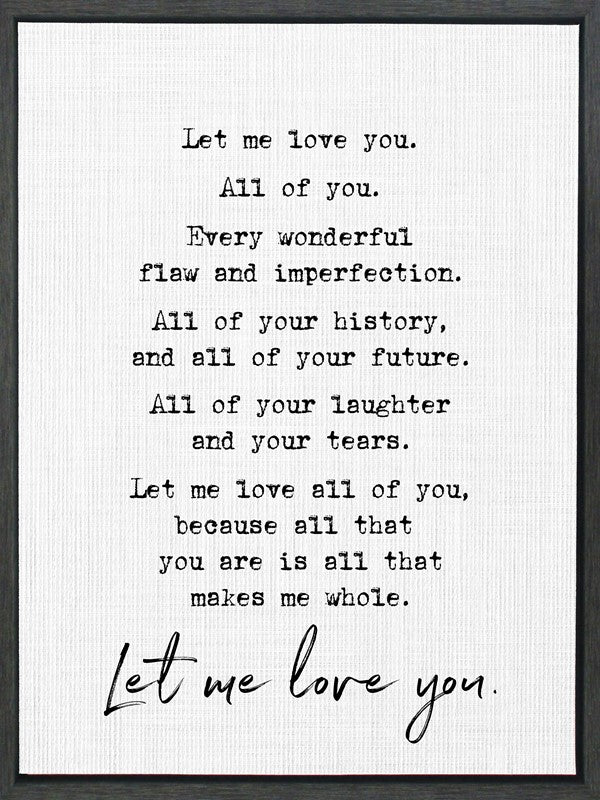 Let me love you.
All of you.
Every wonderful
flaw and imperfection.
All of your history,
and all of your future.
All of your laughter
and your tears.
Let me love all of you,
because all that
you are is all that
makes me whole.
Let me love you.